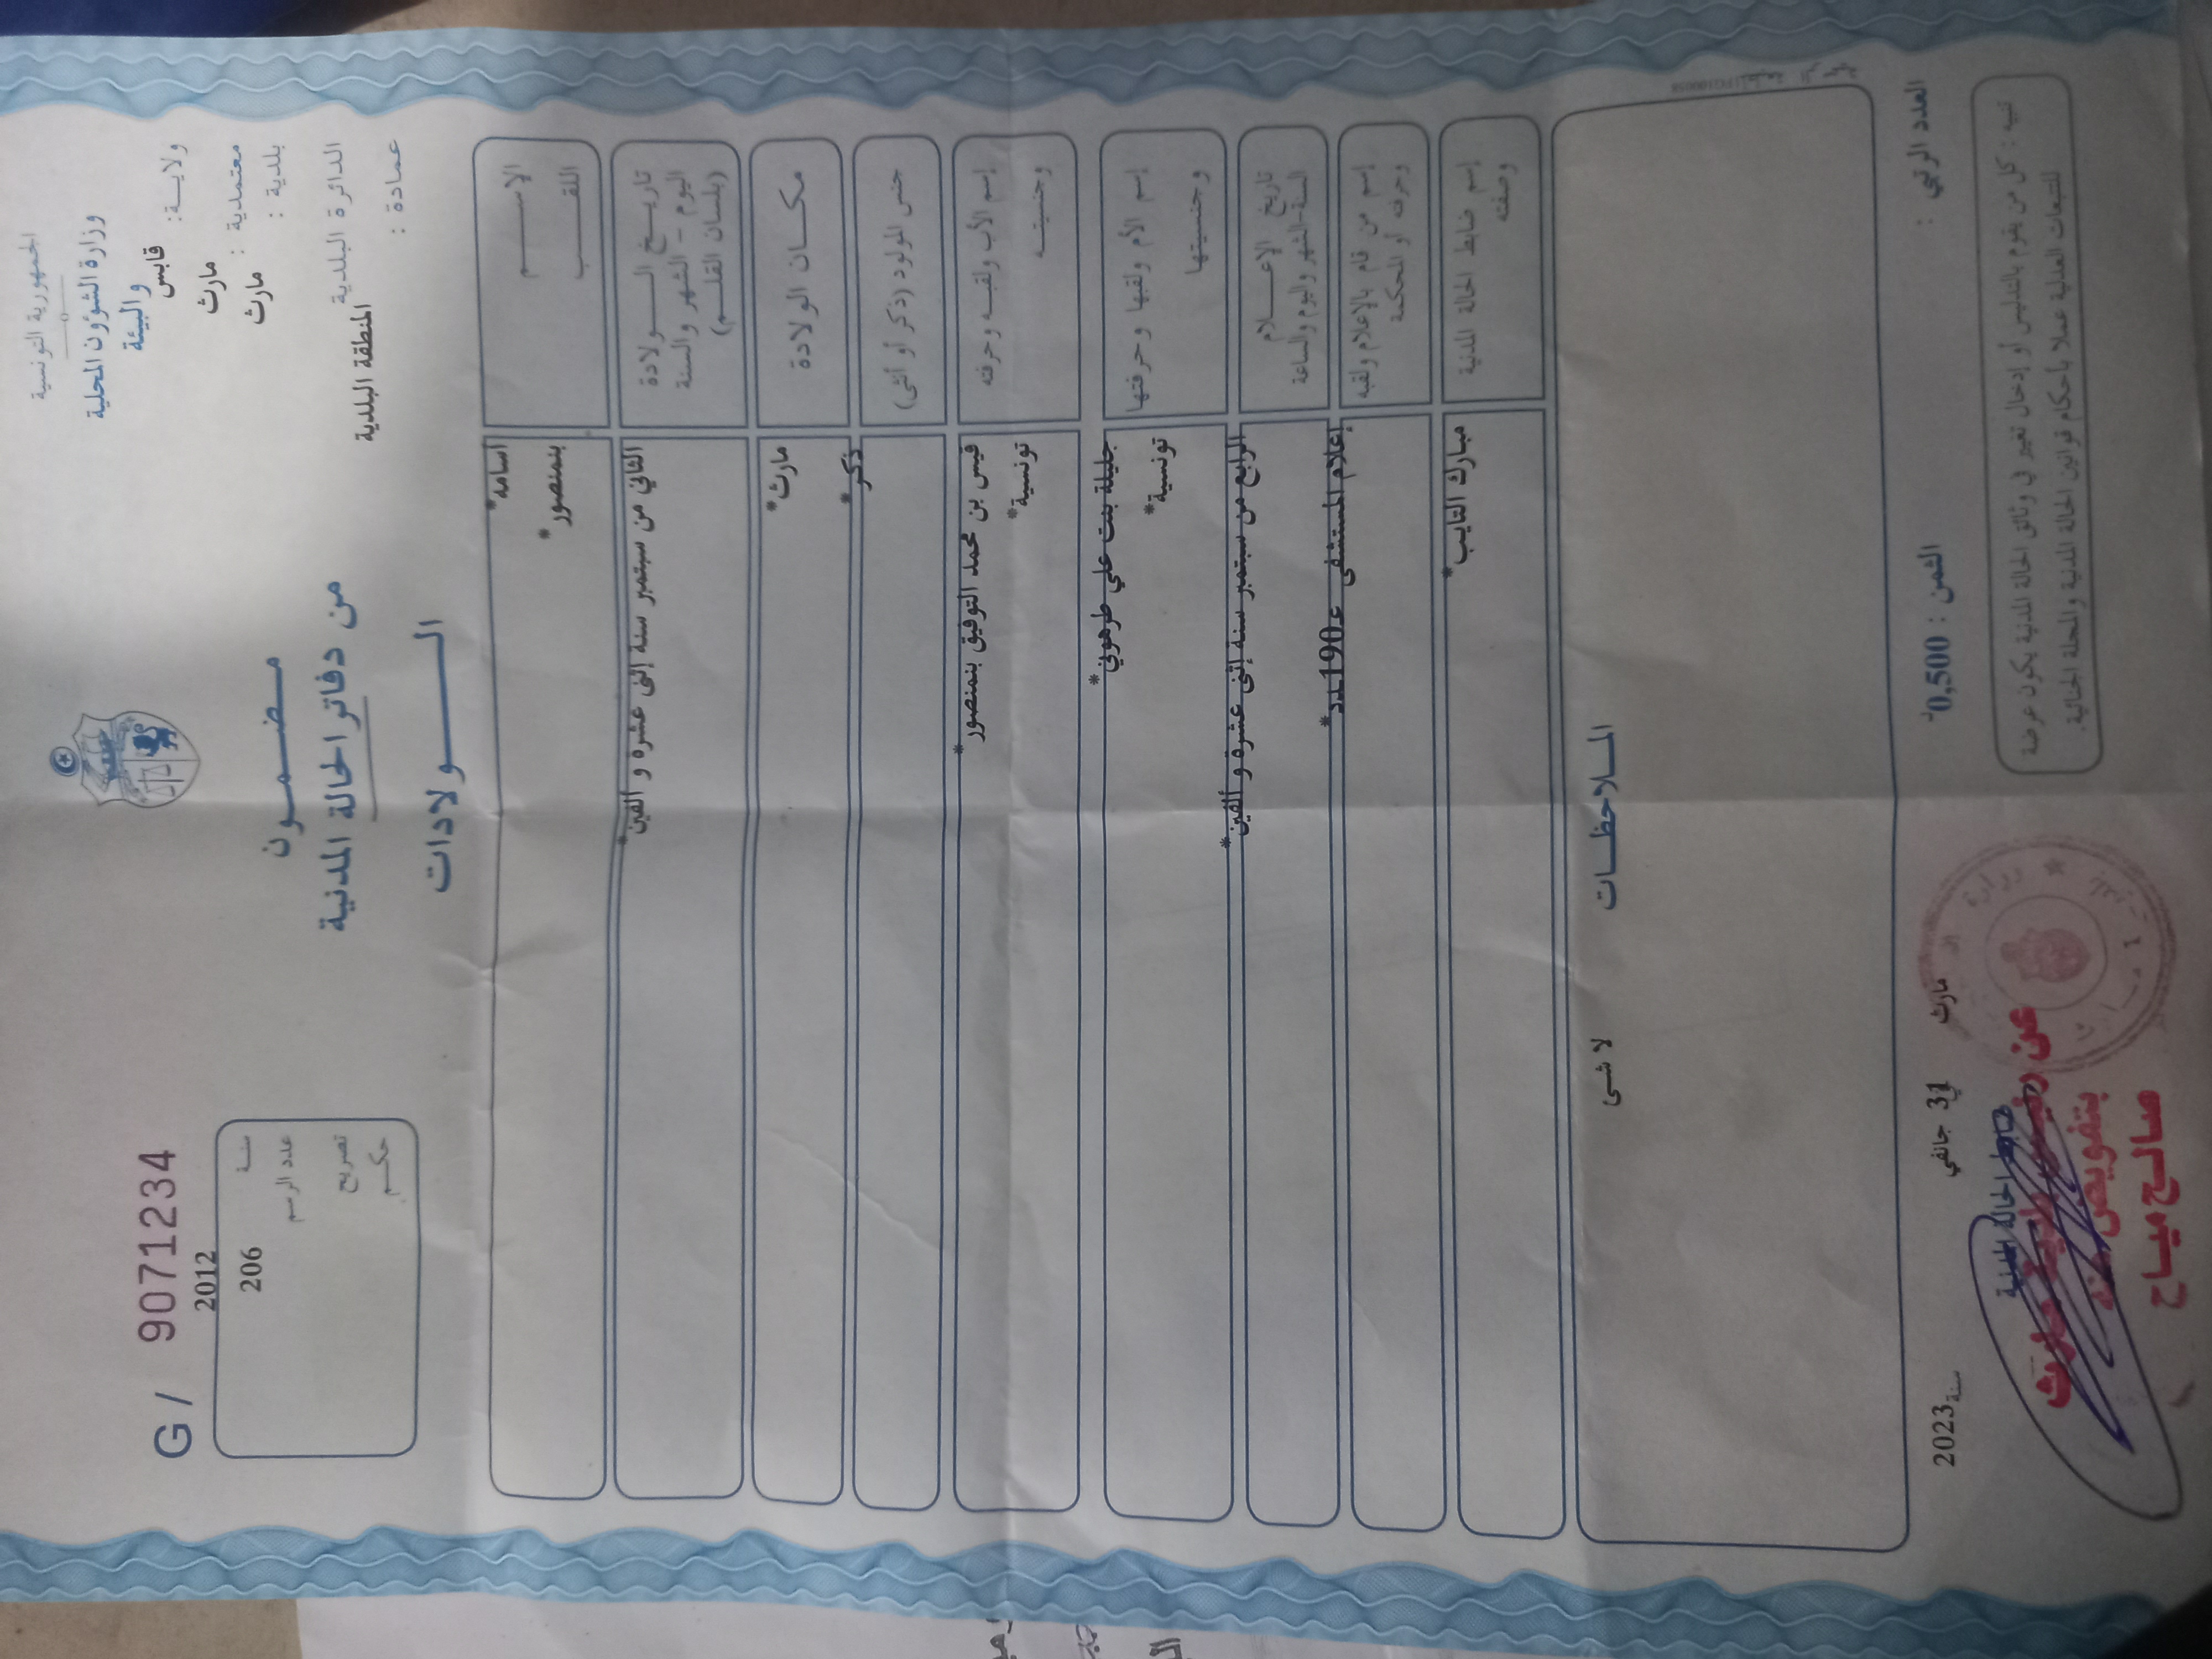 الجمهورية التونسية
وزارة الشؤون المحلية
والبيئة
ولايـــة: قابس
معتمدية : مارث
بلدية : مارث
الدائرة البلدية
المنطقة البلدية
عمادة :
G / 9071234
2012 سنـة
206 عدد الرسم
تصريح
حكـم
مضـمـون
من دفاتر الحالة المدنية
الـــولادات
الإســـم أسامه*
اللقـــب بنمنصور*
تاريـــخ الـــولادة
اليوم - الشهر والسنة
(بلسان القلـــم)
الثاني من سبتمبر سنة إثنى عشرة و ألفين*
مكــان الولادة مارث*
جنس المولود (ذكر أو أنثى) ذكر*
إسم الأب ولقبـه وحرفته قيس بن محمد التوفيق بنمنصور*
وجنسيتـــه تونسية*
إسم الأم ولقبها وحرفتها جليلة بنت علي طرهوني*
وجنسيتها تونسية*
تاريخ الإعـــلام
السنة-الشهر واليوم والساعة
الرابع من سبتمبر سنة إثنى عشرة و ألفين*
إسم من قام بالإعلام ولقبه
وحرفته أو المحكمة
إعلام المستشفى عـ190ـدد*
إسم ضابط الحالة المدنية
وصفته
مبارك التايب*
المـلاحظـــات
لا شى
العدد الرتبي :
الثمن : 0,500د
مارث في 31 جانفي سنة 2023
تنبيه : كل من يقوم بالتدليس أو إدخال تغيير في وثائق الحالة المدنية يكون عرضة
للتتبعات العدلية عملا بأحكام قوانين الحالة المدنية والمجلة الجنائية.
ضابط الحالة المدنية
عن رئيس بلدية مارث
بتفويض منه
صالح مياح